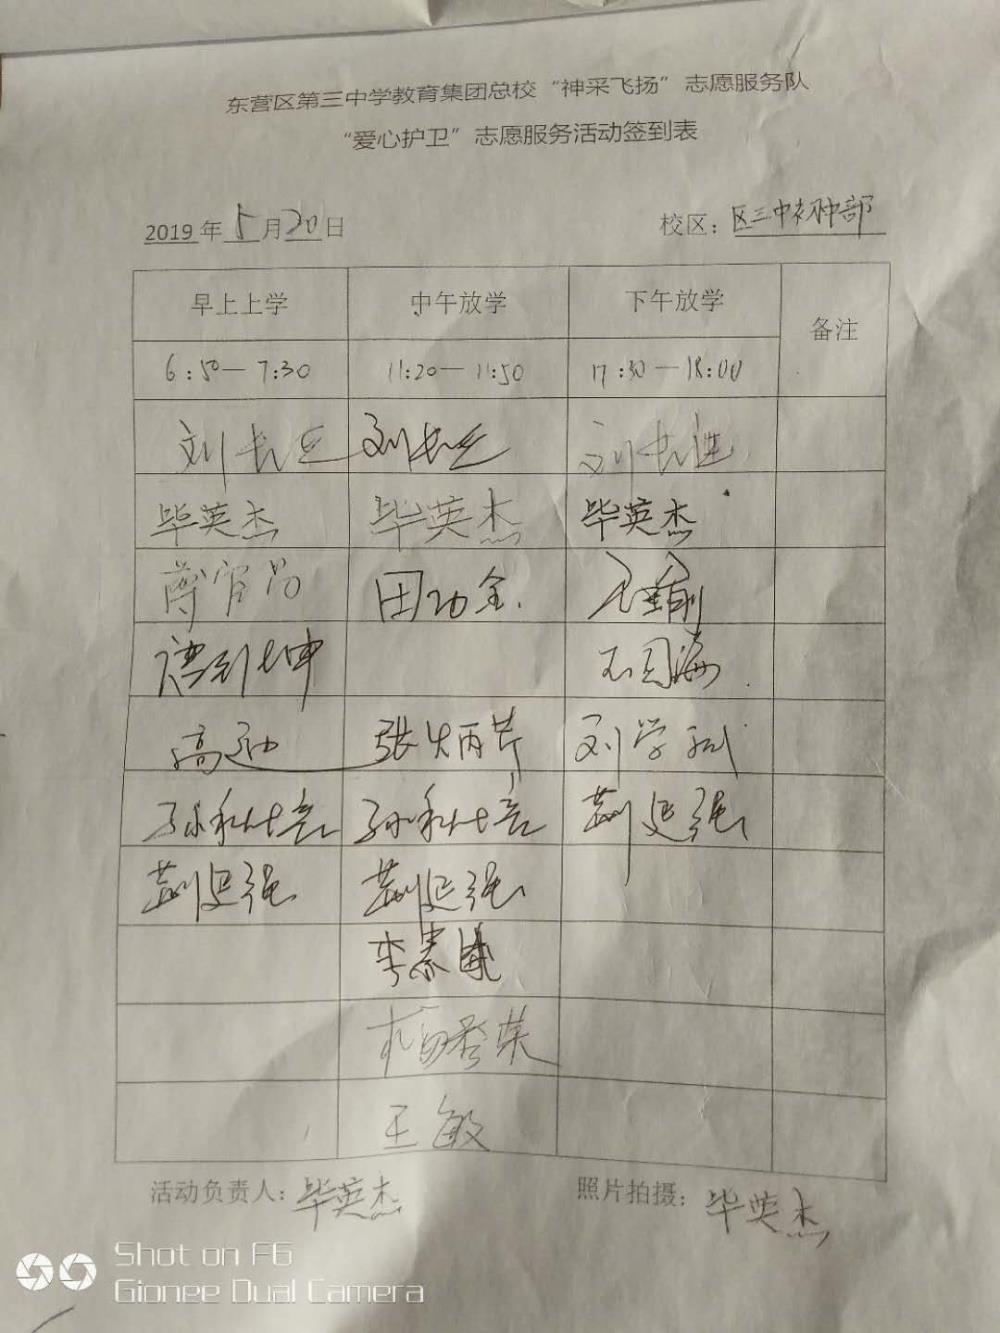 东营区第三中学教育集团总校“神采飞扬”志愿服务队
“爱心护卫”志愿服务活动签到表
2019年5月20日 校区：区三中初中部
早上上学 中午放学 下午放学 备注
6:50—7:30 11:20—11:50 17:30—18:00
刘长进 刘长进 刘长进
毕英杰 毕英杰 毕英杰
田功全
高 张炳芹 刘学
孙秋培 孙秋培 荆延强
荆延强 荆延强
李素
杨秀荣
王敏
活动负责人：毕英杰 照片拍摄：毕英杰
Shot on F6
Gionee Dual Camera